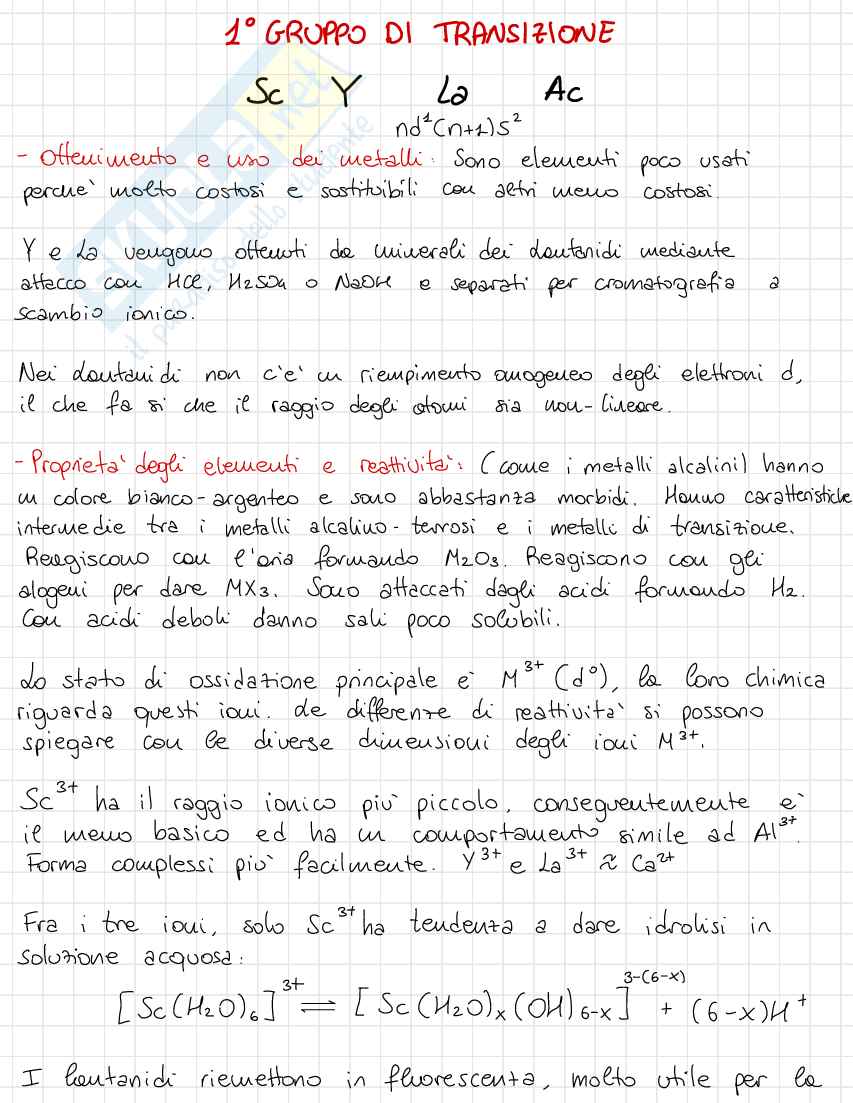 1° GRUPPO DI TRANSIZIONE
Sc Y La Ac
nd¹(n+1)s²
- Ottenimento e uso dei metalli: Sono elementi poco usati
perche` molto costosi e sostituibili con altri meno costosi.
Y e La vengono ottenuti da minerali dei Lantanidi mediante
attacco con HCl, H2SO4 o NaOH e separati per cromatografia a
scambio ionico.
Nei Lantanidi non c'e' un riempimento omogeneo degli elettroni d,
il che fa si che il raggio degli atomi sia non-lineare.
- Proprieta` degli elementi e reattivita`: (come i metalli alcalini) hanno
un colore bianco-argenteo e sono abbastanza morbidi. Hanno caratteristiche
intermedie tra i metalli alcalino-terrosi e i metalli di transizione.
Reagiscono con l'aria formando M2O3. Reagiscono con gli
alogeni per dare MX3. Sono attaccati dagli acidi formando H2.
Con acidi deboli danno sali poco solubili.
Lo stato di ossidazione principale e` M³⁺ (d⁰), la loro chimica
riguarda questi ioni. Le differenze di reattivita` si possono
spiegare con le diverse dimensioni degli ioni M³⁺.
Sc³⁺ ha il raggio ionico piu` piccolo, conseguentemente e`
il meno basico ed ha un comportamento simile ad Al³⁺.
Forma complessi piu` facilmente. Y³⁺ e La³⁺ ≈ Ca²⁺
Fra i tre ioni, solo Sc³⁺ ha tendenza a dare idrolisi in
soluzione acquosa:
[Sc(H2O)6]³⁺ ⇌ [Sc(H2O)x(OH)6-x]³⁻⁽⁶⁻ˣ⁾ + (6-x)H⁺
I lantanidi riemettono in fluorescenza, molto utile per la
SKUOLA.net
il paradiso dello studente